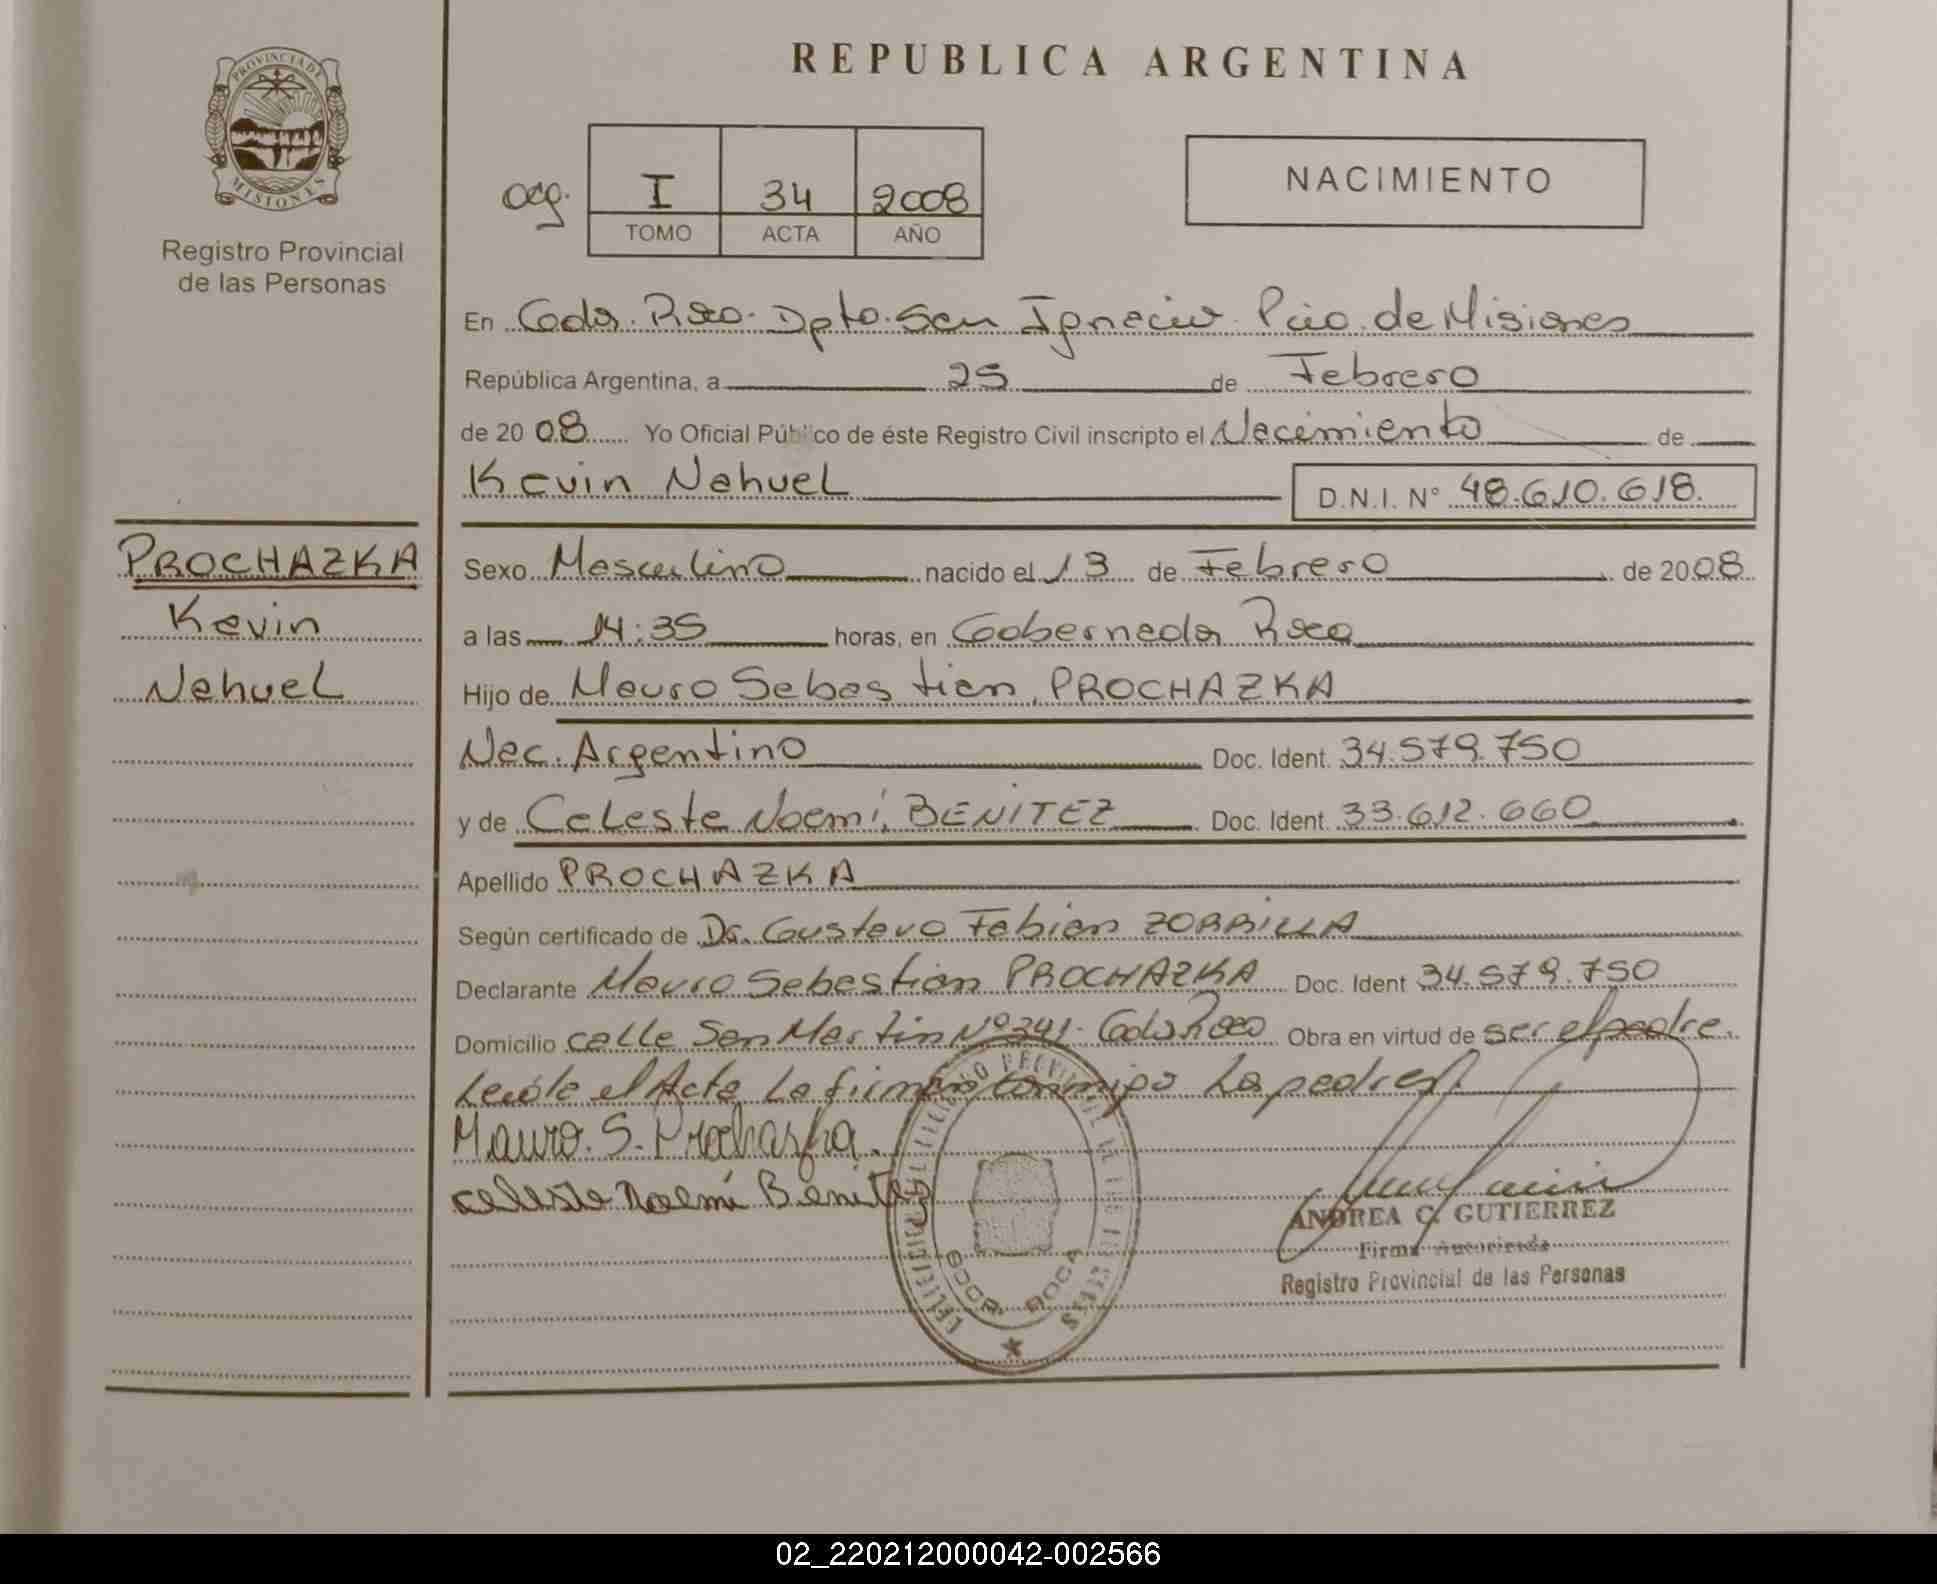 PROVINCIA DE
MISIONES
Registro Provincial
de las Personas
PROCHAZKA
Kevin
Nahuel
REPUBLICA ARGENTINA
I 34 2008
TOMO ACTA AÑO
NACIMIENTO
En Gdor. Roca. Dpto. San Ignacio. Pcia. de Misiones
República Argentina, a 25 de Febrero
de 20 08 Yo Oficial Público de éste Registro Civil inscripto el Nacimiento de
Kevin Nahuel D.N.I. N° 48.610.618.
Sexo Masculino nacido el 13 de Febrero de 20 08
a las 14:35 horas, en Gobernador Roca
Hijo de Mauro Sebastian, PROCHAZKA
Nac. Argentino Doc. Ident. 34.579.750
y de Celeste Noemí, BENITEZ Doc. Ident. 33.612.660
Apellido PROCHAZKA
Según certificado de Dr. Gustavo Fabian ZORRILLA
Declarante Mauro Sebastian PROCHAZKA Doc. Ident 34.579.750
Domicilio calle San Martin Nº 341. Gdor Roca Obra en virtud de ser el padre.
Leída el Acta La firman conmigo Los padres.
Mauro. S. Prochaska.
celeste Noemí Benitez
GDOR. ROCA
ANDREA C. GUTIERREZ
Firma Autorizada
Registro Provincial de las Personas
02_220212000042-002566